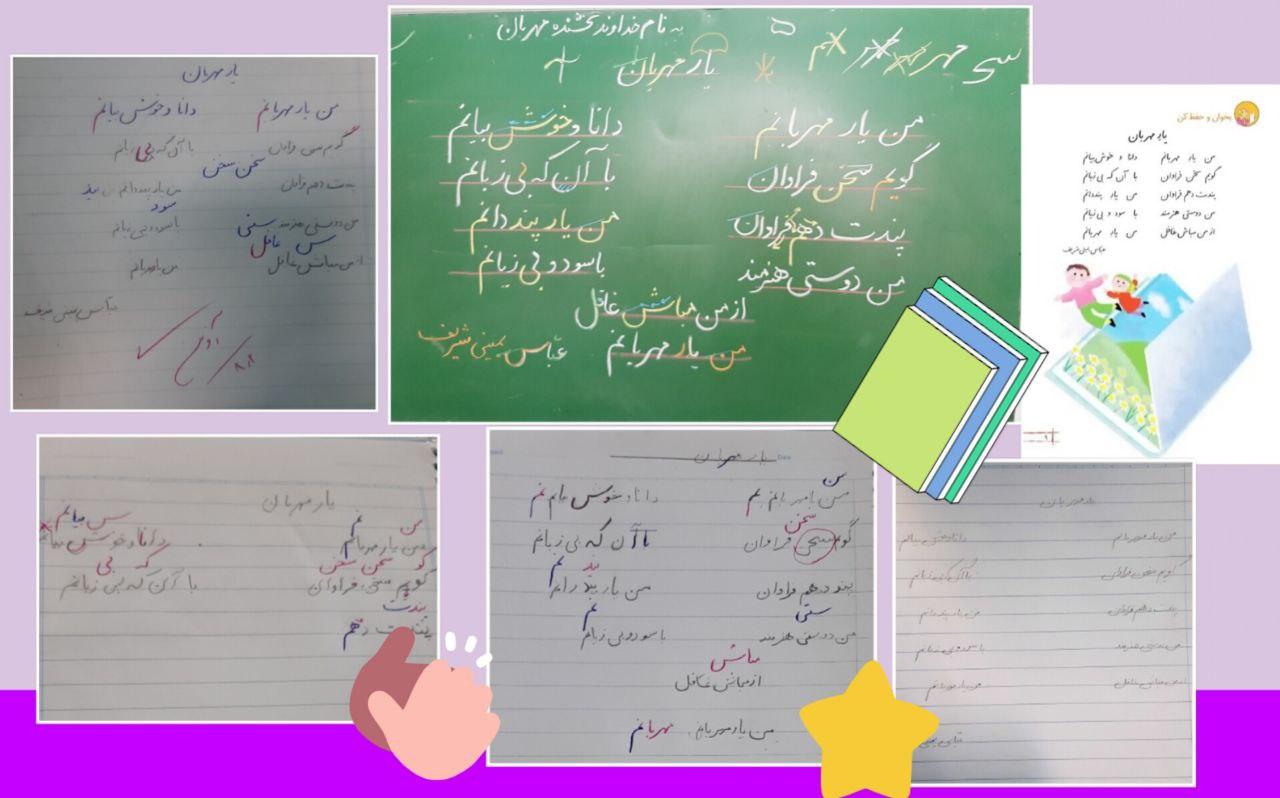 به نام خداوند بخشنده مهربان
یار مهربان
من یار مهربانم دانا و خوش بیانم
گویم سخن فراوان با آن که بی زبانم
پندت دهم فراوان من یار پند دانم
من دوستی هنرمند با سود و بی زیانم
از من مباش غافل
من یار مهربانم عباس یمینی شریف
بخوان و حفظ کن
یار مهربان
من یار مهربانم دانا و خوش بیانم
گویم سخن فراوان با آن که بی زبانم
پندت دهم فراوان من یار پند دانم
من دوستی هنرمند با سود و بی زیانم
از من مباش غافل من یار مهربانم
عباس یمینی شریف
یار مهربان
من یار مهربانم دانا و خوش بیانم
گویم سخن فراوان با آن که بی زبانم
سخن سخن
پندت دهم فراوان من یار پند دانم
سود
من دوستی هنرمند با سود و بی زیانم
غافل
از من مباش غافل من یار مهربانم
عباس یمینی شریف
یار مهربان
من
من یار مهربانم دانا و خوش بیانم
سخن سخن
گویم سخن فراوان با آن که بی زبانم
پندت
پندت دهم
یار مهربان
من
دانا و خوش
سخن
گویم سخن فراوان با آن که بی زبانم
پند
پند دهم فراوان من یار پند دانم
من دوستی هنرمند با سود و بی زیانم
مباش
از مباش غافل
من یار مهربانم مهربانم
یار مهربان
من یار مهربانم دانا و خوش بیانم
گویم سخن فراوان با آن که بی زبانم
پندت دهم فراوان من یار پند دانم
من دوستی هنرمند
من یار مهربانم